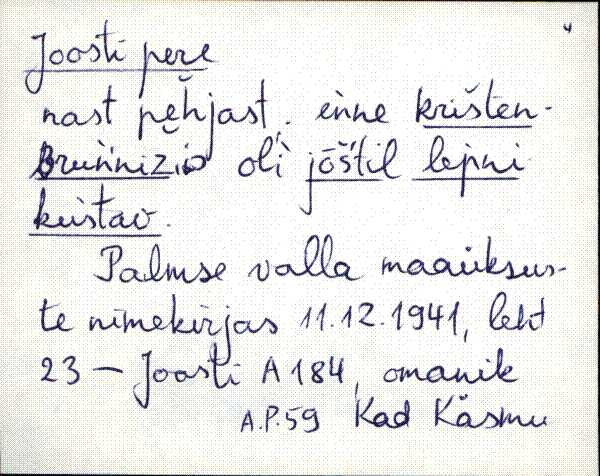 Joosti pere
nast pĕhjast, enne krišten-
brunnizio oli jōštil lepni
kustav.
Palmse valla maaüksus-
te nimekirjas 11.12.1941, leht
23 – Joosti A 184, omanik
A.P.59 Kad Käsmu